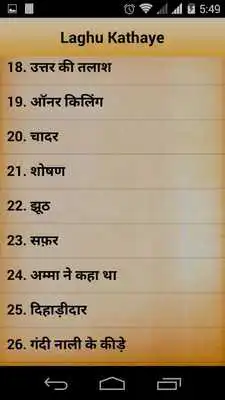 5:49
Laghu Kathaye
18. उत्तर की तलाश
19. ऑनर किलिंग
20. चादर
21. शोषण
22. झूठ
23. सफ़र
24. अम्मा ने कहा था
25. दिहाड़ीदार
26. गंदी नाली के कीड़े